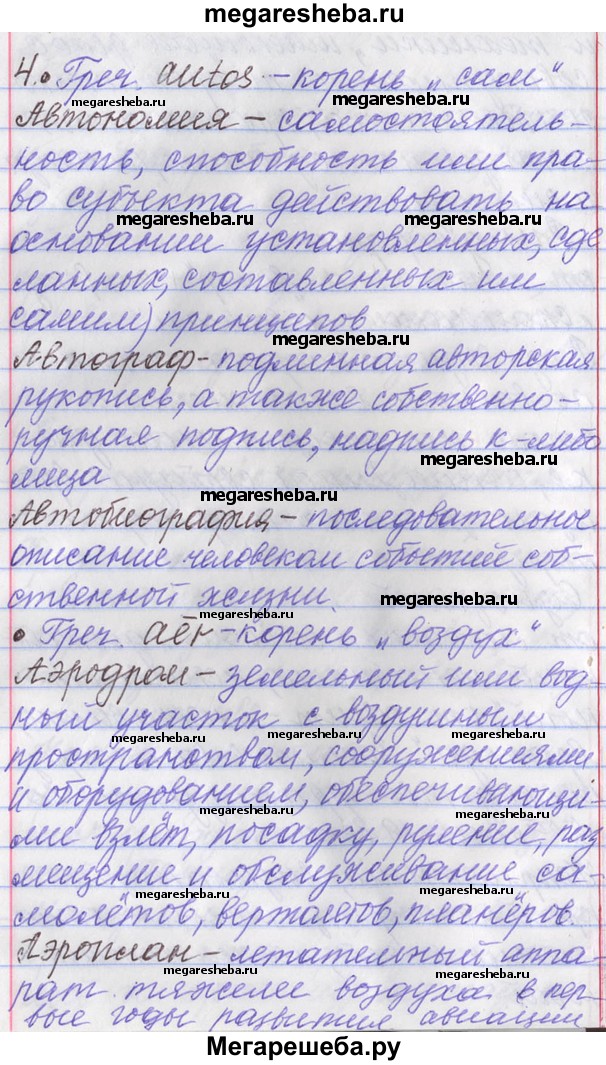 megaresheba.ru
4. • Греч. autos - корень „сам“
megaresheba.ru megaresheba.ru
Автономия - самостоятель-
ность, способность или пра-
во субъекта действовать на
megaresheba.ru megaresheba.ru
основании установленных, сде
ланных, составленных им
самим) принципов
megaresheba.ru
Автограф - подлинная авторская
рукопись, а также собственно-
ручная подпись, надпись к-либо
megaresheba.ru
лица
megaresheba.ru
Автобиография - последовательное
описание человеком событий соб-
ственной жизни.
megaresheba.ru megaresheba.ru
• Греч. aēr - корень „воздух“
Аэродром - земельный или вод-
ный участок с воздушным
megaresheba.ru megaresheba.ru
пространством, сооружениями
и оборудованием, обеспечивающи-
megaresheba.ru megaresheba.ru
ми взлёт, посадку, руление, раз
мещение и обслуживание са-
megaresheba.ru
молётов, вертолётов, планёров.
Аэроплан - летательный аппа-
megaresheba.ru megaresheba.ru
рат тяжелее воздуха в пер-
вые годы развития авиации
Мегарешеба.ру